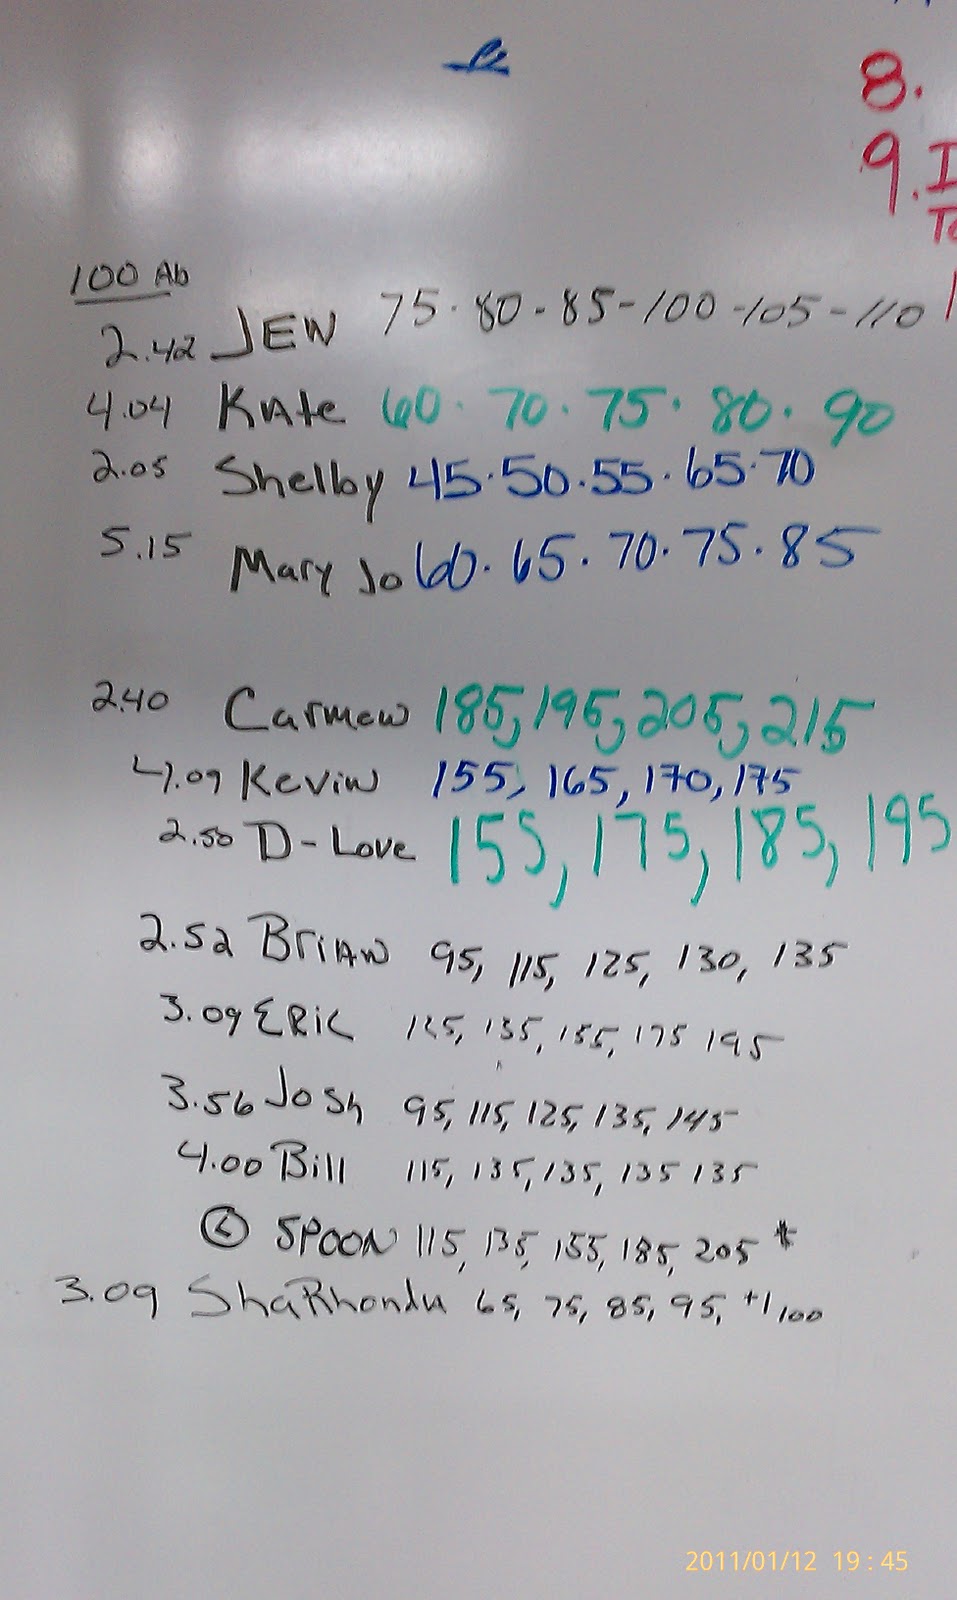 8.
9. I
100 Ab
2.42 JEW 75 - 80 - 85 - 100 - 105 - 110
4.04 Kate 60 · 70 · 75 · 80 · 90
2.05 Shelby 45 · 50 · 55 · 65 · 70
5.15 Mary Jo 60 · 65 · 70 · 75 · 85
2.40 Carmen 185, 195, 205, 215
4.09 Kevin 155, 165, 170, 175
2.50 D-Love 155, 175, 185, 195
2.52 Brian 95, 115, 125, 130, 135
3.09 ERiC 125, 135, 155, 175 195
3.56 Josh 95, 115, 125, 135, 145
4.00 Bill 115, 135, 135, 135 135
SPOON 115, 135, 155, 185, 205 *
3.09 ShaRhonda 65, 75, 85, 95, +1 100
2011/01/12 19:45